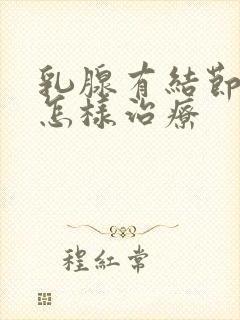 乳腺有結節
怎樣治療
程紅常